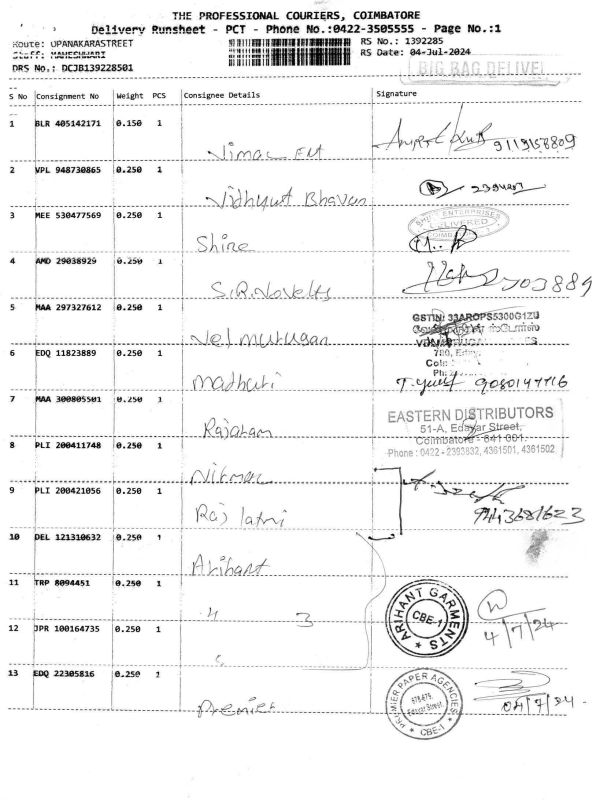 THE PROFESSIONAL COURIERS, COIMBATORE
Delivery Runsheet - PCT - Phone No.:0422-3505555 - Page No.:1
Route: OPANAKARASTREET RS No.: 1392285
Staff: MAHESHWARI RS Date: 04-Jul-2024
DRS No.: DCJB139228501 BIG BAG DELIVE
S No Consignment No Weight PCS Consignee Details Signature
1 BLR 405142171 0.150 1
Vimac Ent 9119158809
2 VPL 948730865 0.250 1
Vidhyut Bhavan
3 MEE 530477569 0.250 1
SHINE ENTERPRISES
DELIVERED
Shine
4 AMD 29038929 0.250 1
S.R.Novelts
5 MAA 297327612 0.250 1
GSTIN: 33AROPS5300G1ZU
Velmurugan
6 EDQ 11823889 0.250 1
780,
Madhuri 9080147716
7 MAA 300805501 0.250 1
EASTERN DISTRIBUTORS
51-A, Edayar Street,
Rajaram Coimbatore - 641 001.
8 PLI 200411748 0.250 1 Phone : 0422 - 2393832, 4361501, 4361502
Nirmac
9 PLI 200421056 0.250 1
Raj 9443681623
10 DEL 121310632 0.250 1
Arihant
11 TRP 8094451 0.250 1
" 3 ARIHANT GARMENTS CBE-1
12 JPR 100164735 0.250 1 4/7/24
"
13 EDQ 22305816 0.250 1
Premier PREMIER PAPER AGENCIES Edayar Street, CBE-1 04/7/24